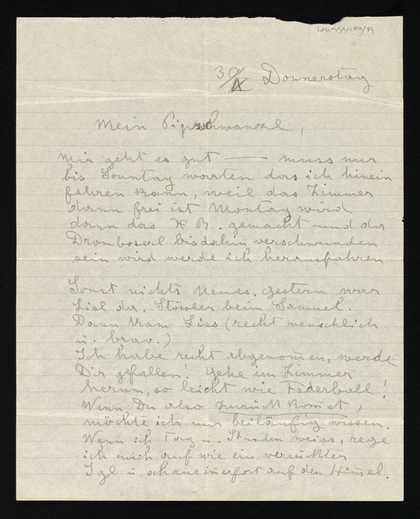 30/X Donnerstag
Mein Pipschwanzl,
mir geht es gut — muss nur
bis Sonntag warten dass ich hinein
fahren kann, weil das Zimmer
dann frei ist Montag wird
dann das R. gemacht und da
bis dahin verschwunden
sein wird werde ich herausfahren
Sonst nichts Neues. Gestern war
Lisl da. beim Samuel.
Dann kam Liss (recht menschlich
u. brav.)
Ich habe recht abgenommen, werde
Dir gefallen! Gehe im Zimmer
herum, so leicht wie Federball!
Wenn Du also zurück komst,
möchte ich nur beiläufig wissen.
Wenn ich Tag u. Stunden weiss, rege
ich mich auf wie ein verrückter
Igl u. schaue immerfort auf den Himel.